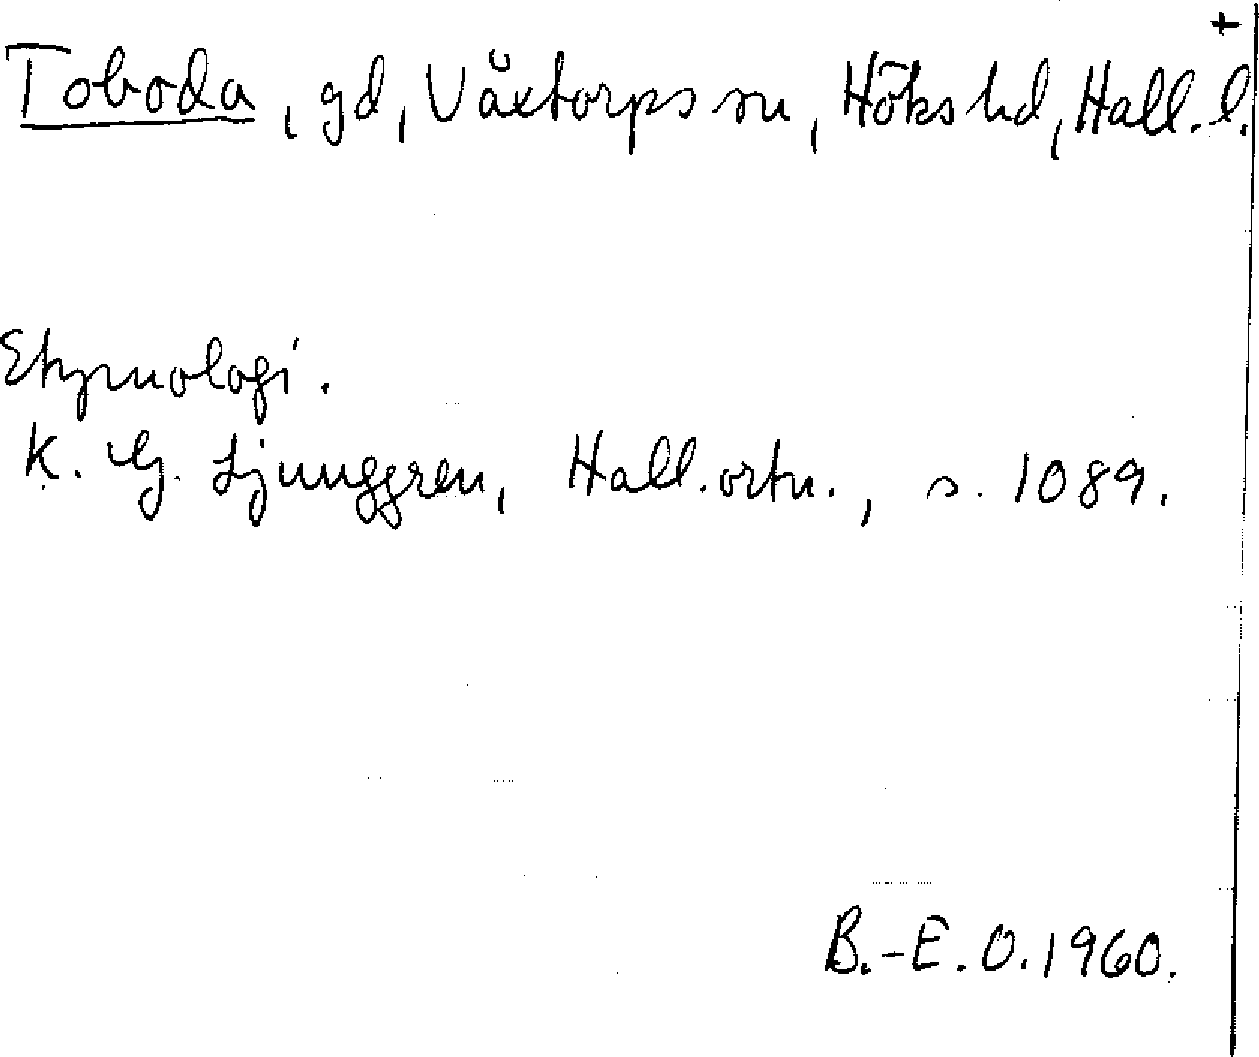 +
Toboda, gd, Växtorps sn, Höks hd, Hall. l.
Etymologi.
K. G. Ljunggren, Hall. ortn., s. 1089.
B.-E. O. 1960.